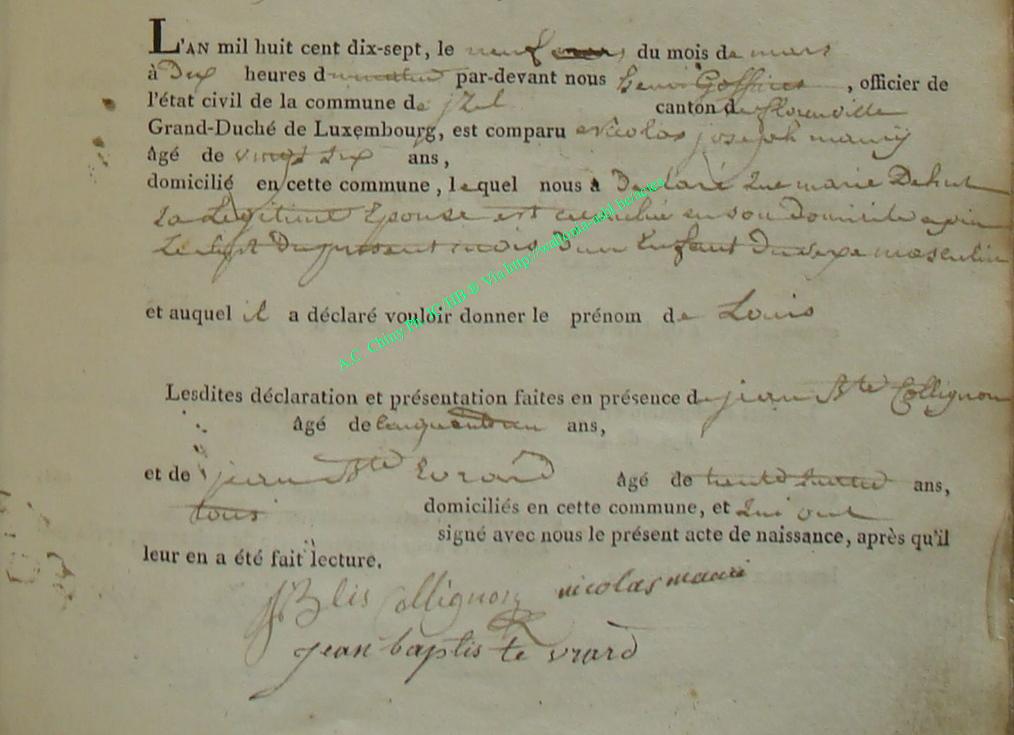 L'AN mil huit cent dix-sept, le neuf du mois de mars
à Dix heures d par-devant nous henri Goffinet, officier de
l'état civil de la commune de jzel canton de florenville
Grand-Duché de Luxembourg, est comparu nicolas joseph maury
âgé de vingt six ans,
domicilié en cette commune, lequel nous a Declaré que marie Dehut
La Legitime Epouse est accouchée en son Domicile
Le sept Du present mois D'un Enfant Du sexe masculin
et auquel il a déclaré vouloir donner le prénom de Louis
Lesdites déclaration et présentation faites en présence de jean Bte Collignon
âgé de ans,
et de jean Bte Evrard âgé de trente quatre ans,
tous domiciliés en cette commune, et qui ont
signé avec nous le présent acte de naissance, après qu'il
leur en a été fait lecture.
Collignon nicolas mauri
jean baptiste vrard
A.C. Chiny Ph. JC HB © Via http://wallonia-asbl.be/actes